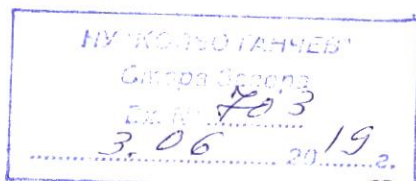 НУ "КОЛЬО ГАНЧЕВ"
Стара Загора
Вх. № 703
3.06 2019 г.